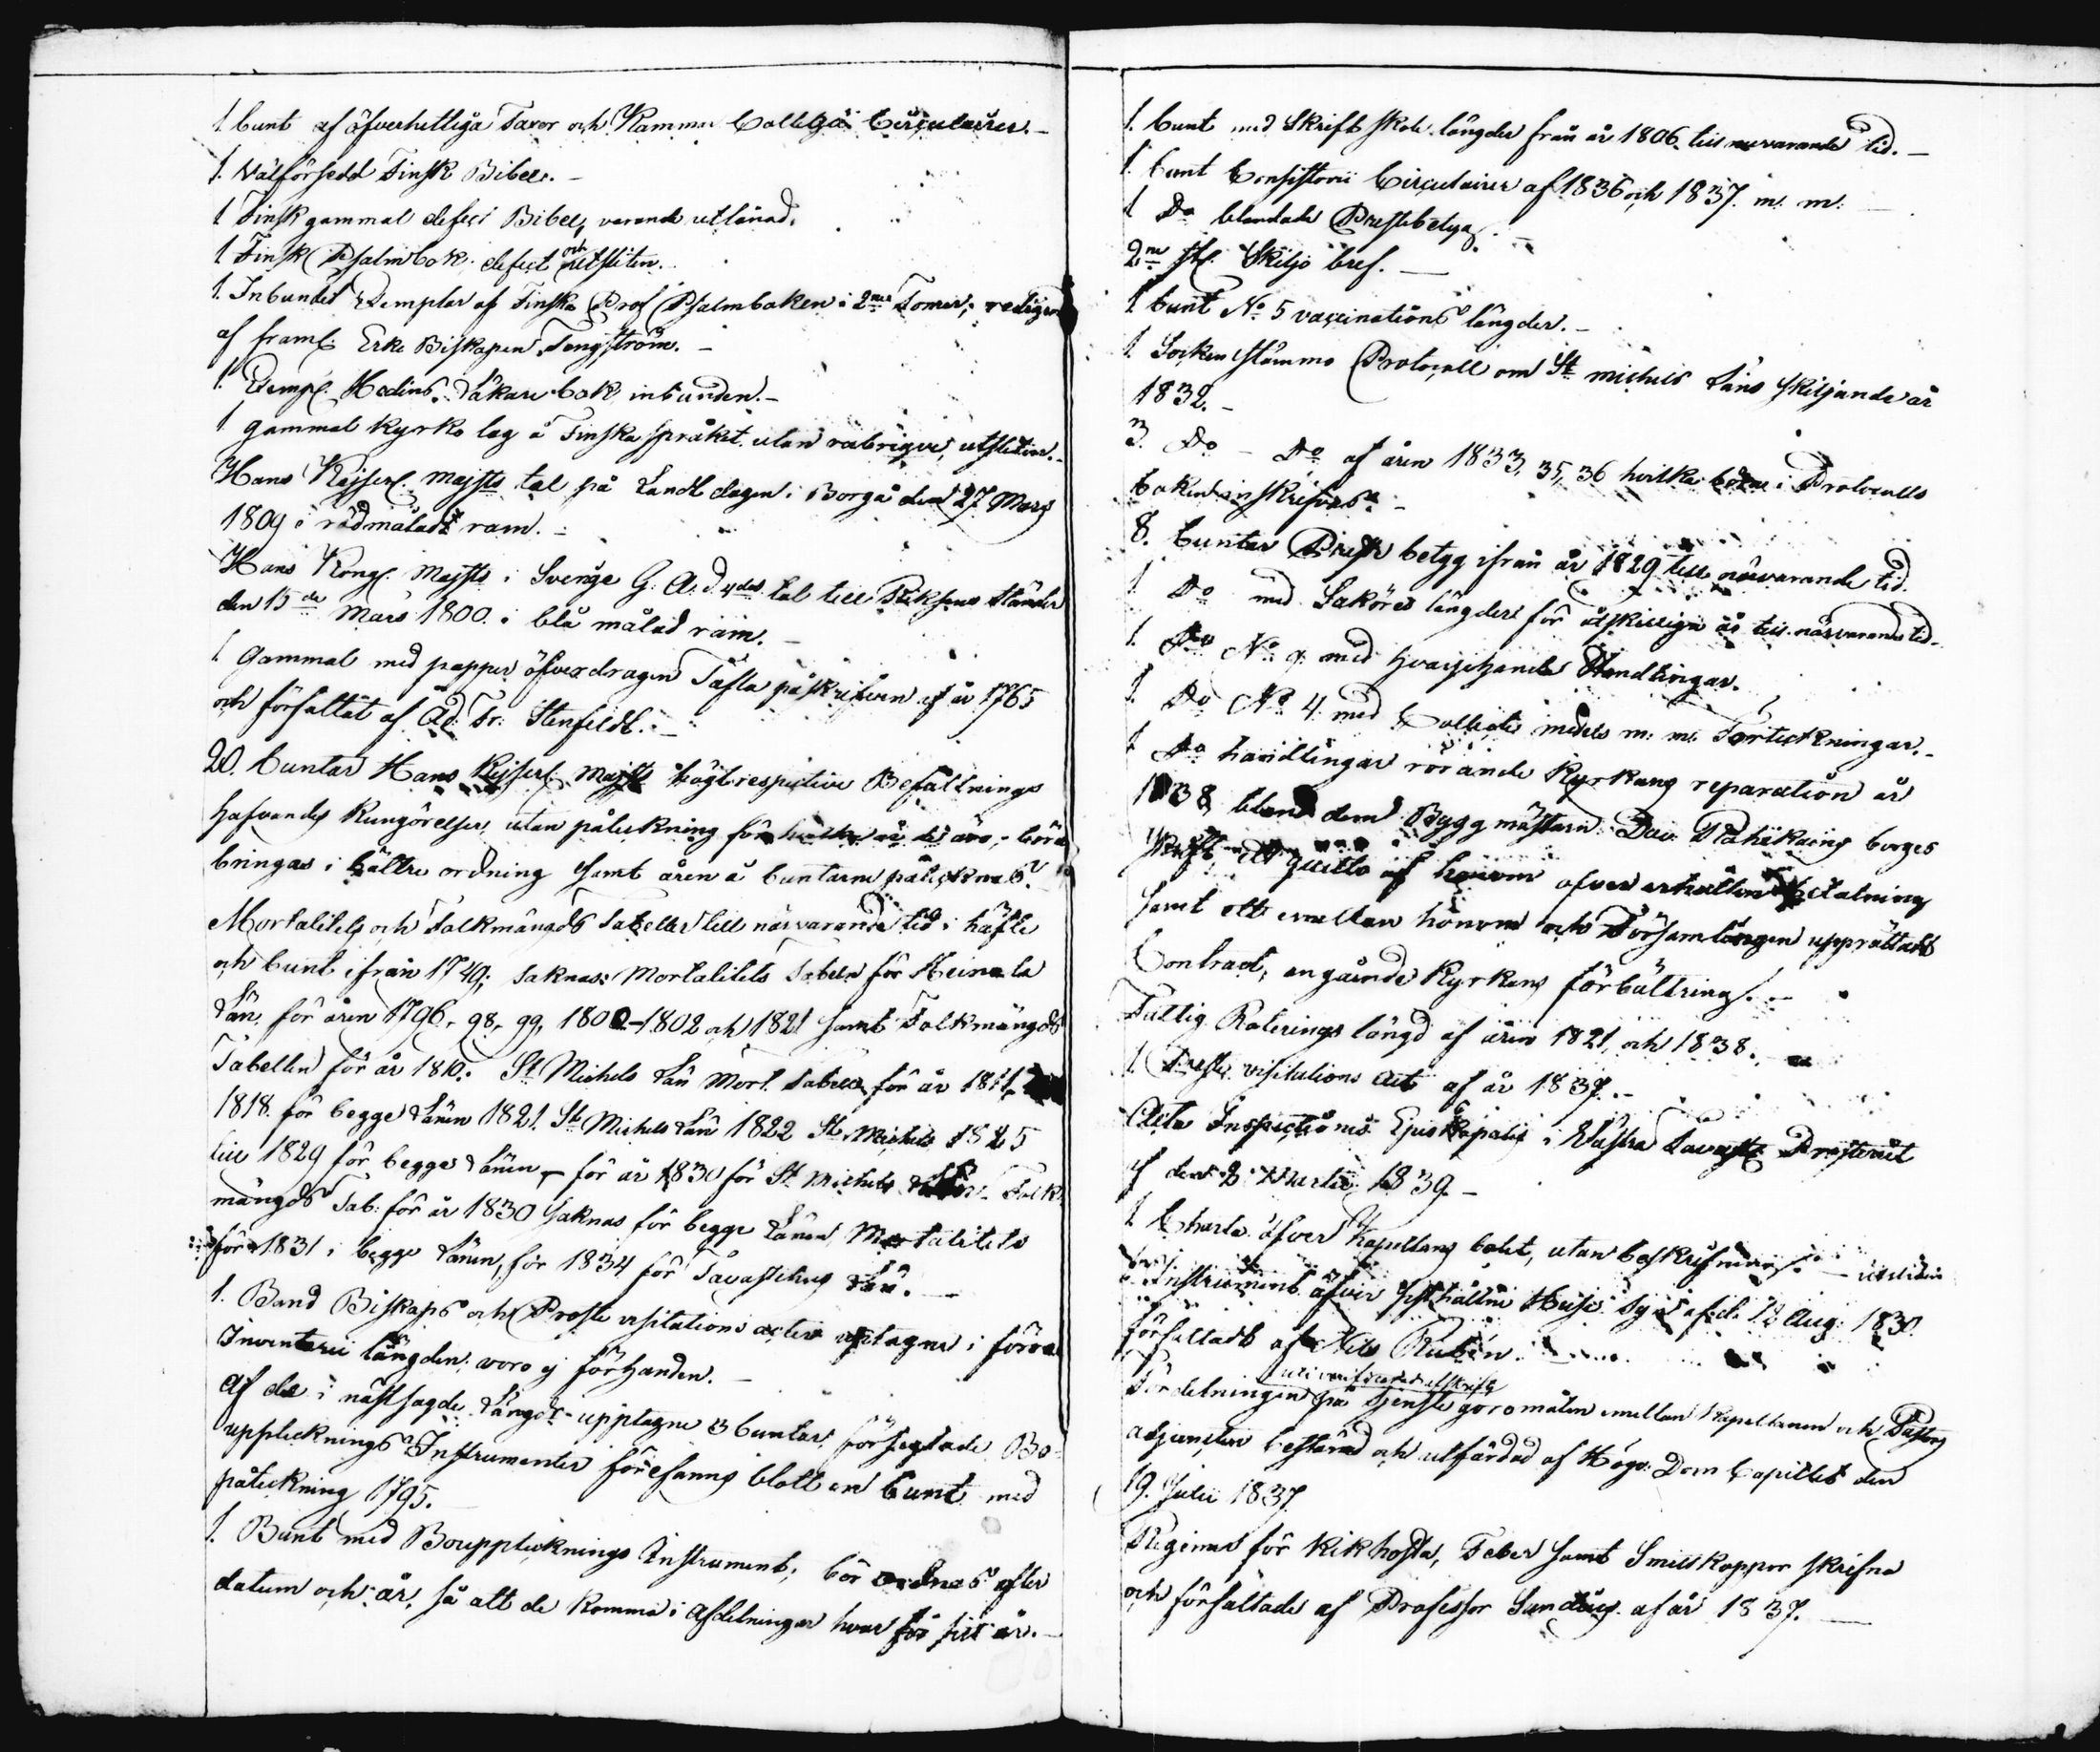 1. bunt af öfverhettliga Taxor och Kammar Collegii Circulairer. -
1. Välförsedd Finsk Bibel. -
1 Finsk gammal defect Bibel, varande utlånad.
1 Finsk Psalmbok defect och utsliten.
1. Inbundet Exemplar af Finska Prof Psalmboken i 2ne Tomer, redigerad
af framl. Erke Biskopen Tengström. -
1. Exempl. Hedins Läkare bok inbunden. -
1 gammal kyrko lag å Finska språket utan rubriquer, utsleten. -
Hans Kejserl. Majsts tal på Landtdagen i Borgå den 27 Mars
1809 i rödmålad ram. -
Hans Kongl. Majsts i Sverige G. A. d. 4des tal till Riksens Ständer
den 15de Mars 1800. i blå målad ram. -
1. Gammal med papper öfverdragen Tafla påskrifven af år 1765
och författat af Ad. Fr. Stenfeldt. -
20. buntar Hans Kejserl. Majsts högtrespective Befallnings
hafvandes Kungörelser, utan påteckning för hvilka år de äro, - böra
bringas i bättre ordning samt åren å buntarne påtecknas.
Mortalitets och Folkmängds Tabeller till närvarande tid i häfte
och bunt ifrån 1749; saknas: Mortalitets Tabeln för Heinola
Län för åren 1796, 98, 99, 1800 - 1802 och 1821 samt Folkmängds
Tabellen för år 1810. St Michels Län Mort. Tabell för år 1811,
1818. för begge Länen 1821. St Michels Län 1822 St Michels 1825
till 1829 för begge Länen - för år 1830 för St Michels Län. Folk
mängds Tab: för år 1830 saknas för begge Länen Mortalitets
för 1831 i begge Länen, för 1834 för Tavastehus Län. -
1. Band Biskops och Prosts visitations acter uptagne i förra
Inventarii längden; voro ej förhanden. -
Af de i nästsagde Längd upptagne 3 buntar, förseglade Bo-
upptecknings Instrumenter förefanns blott en bunt med
påteckning 1795.
1. Bunt med Boupptecknings Instrument; bör ordnas efter
datum och år, så att de komma i afdelningar hvar för sitt år. -
1. bunt med Skriftskole längder från år 1806 till nuvarande tid. -
1. bunt Consistorii Circulairer af 1836 och 1837. m. m.
1 Do blandade Prestbetyg. -
2ne st. Skiljobref. -
1 bunt No 5 vaccinations längder. -
1. Sockenstämmo Protocoll om St Michels Läns skiljande år
1832. -
3. Do - Do af åren 1833, 35, 36 hvilka böra i Protocolls
boken inskrifvas. -
8. buntar Prest betyg ifrån år 1829 till närvarande tid.
1 Do med Saköres längder för åtskilliga år till närvarande tid. -
1. Do No 9 med hvarjehanda Handlingar.
1. Do No 4 med Collecte medels m. m. Förteckningar. -
1 Do handlingar rörande Kyrkans reparation år
1838 bland dem Byggmästaren Dav. Rahikains borges
skrift, ett quitto af honom öfver erhållen betalning
samt ett emellan honom och Församlingen upprättadt
Contract, angående Kyrkans förbättring. -
Fattig Roterings längd af åren 1821, och 1838. -
1. Prosts visitations Act af år 1837. -
Acta Inspectionis Episkopalis i Västra Tavasts Prosteriet
af den 2 Martii 1839. -
1 Charta öfver Kapellans bolet, utan beskrifning. - utsliten
Instrument öfver hållne Huse Syn af d. 12 Aug. 1830
författadt af Nils Rubén.
i verificerad afskrift
Fördelningen på tjenste göromålen emellan Kapellanen och Pastors
adjuncten bestämd och utfärdad af Högv. Dom Capitlet den
19. Julii 1837.
Regimer för Kikhosta, Feber samt Smittkoppor skrifne
och författade af Professor af år 1837. -